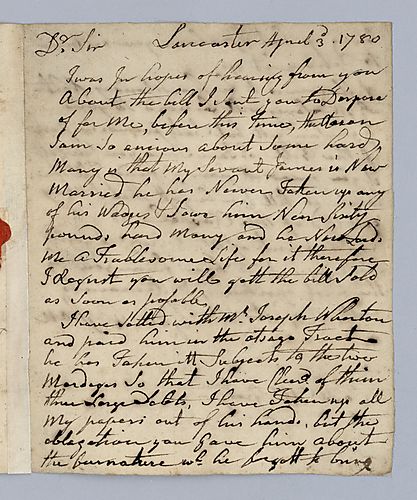 Dr. Sir Lancaster April 3. 1780
I was In hopes of hearing from you
About the bill I Sent you to Dispose
of for Me, before this time, the Reason
I am So ancious about Some hard
Many is that My Sarvant James is Now
Married he has Never Taken up any
of his Wages & I owe him Near Sixty
pounds hard Many and he Now Leads
Me a Trublesome Life for it therefore
I Request you will gett the bill Sold
as Soon as posable
I have Setled with Mr. Joseph Wharton
and paid him in the Tract
he has Taken it Subject to the two
Mordages So that I have Cleard of them
three Large Debts, I have Taken up all
My papers out of his hands, but the
obligation you Gave him about
the burnature wh. he forgott to bring